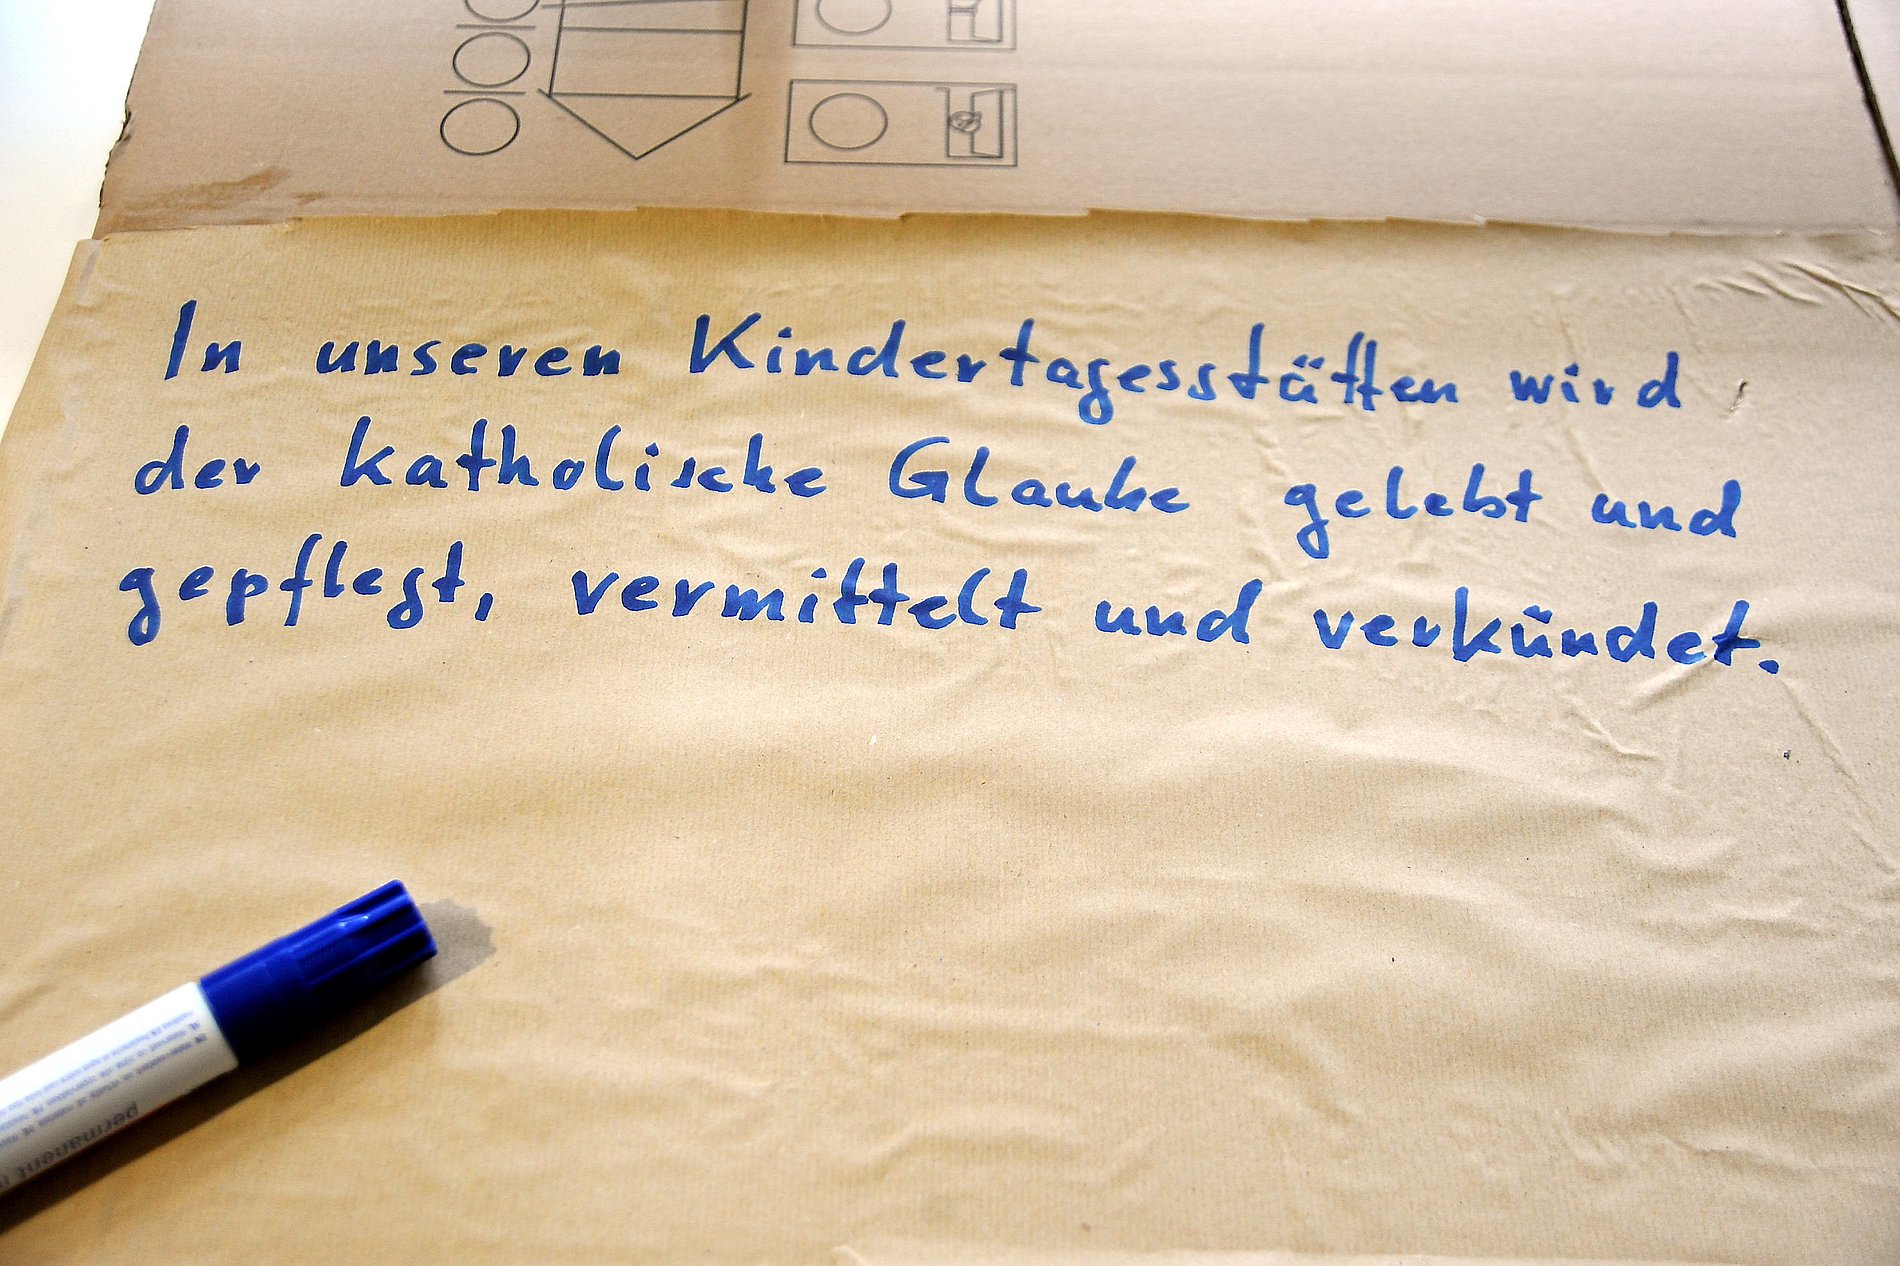 In unseren Kindertagesstätten wird
der katholische Glaube gelebt und
gepflegt, vermittelt und verkündet.
permanent